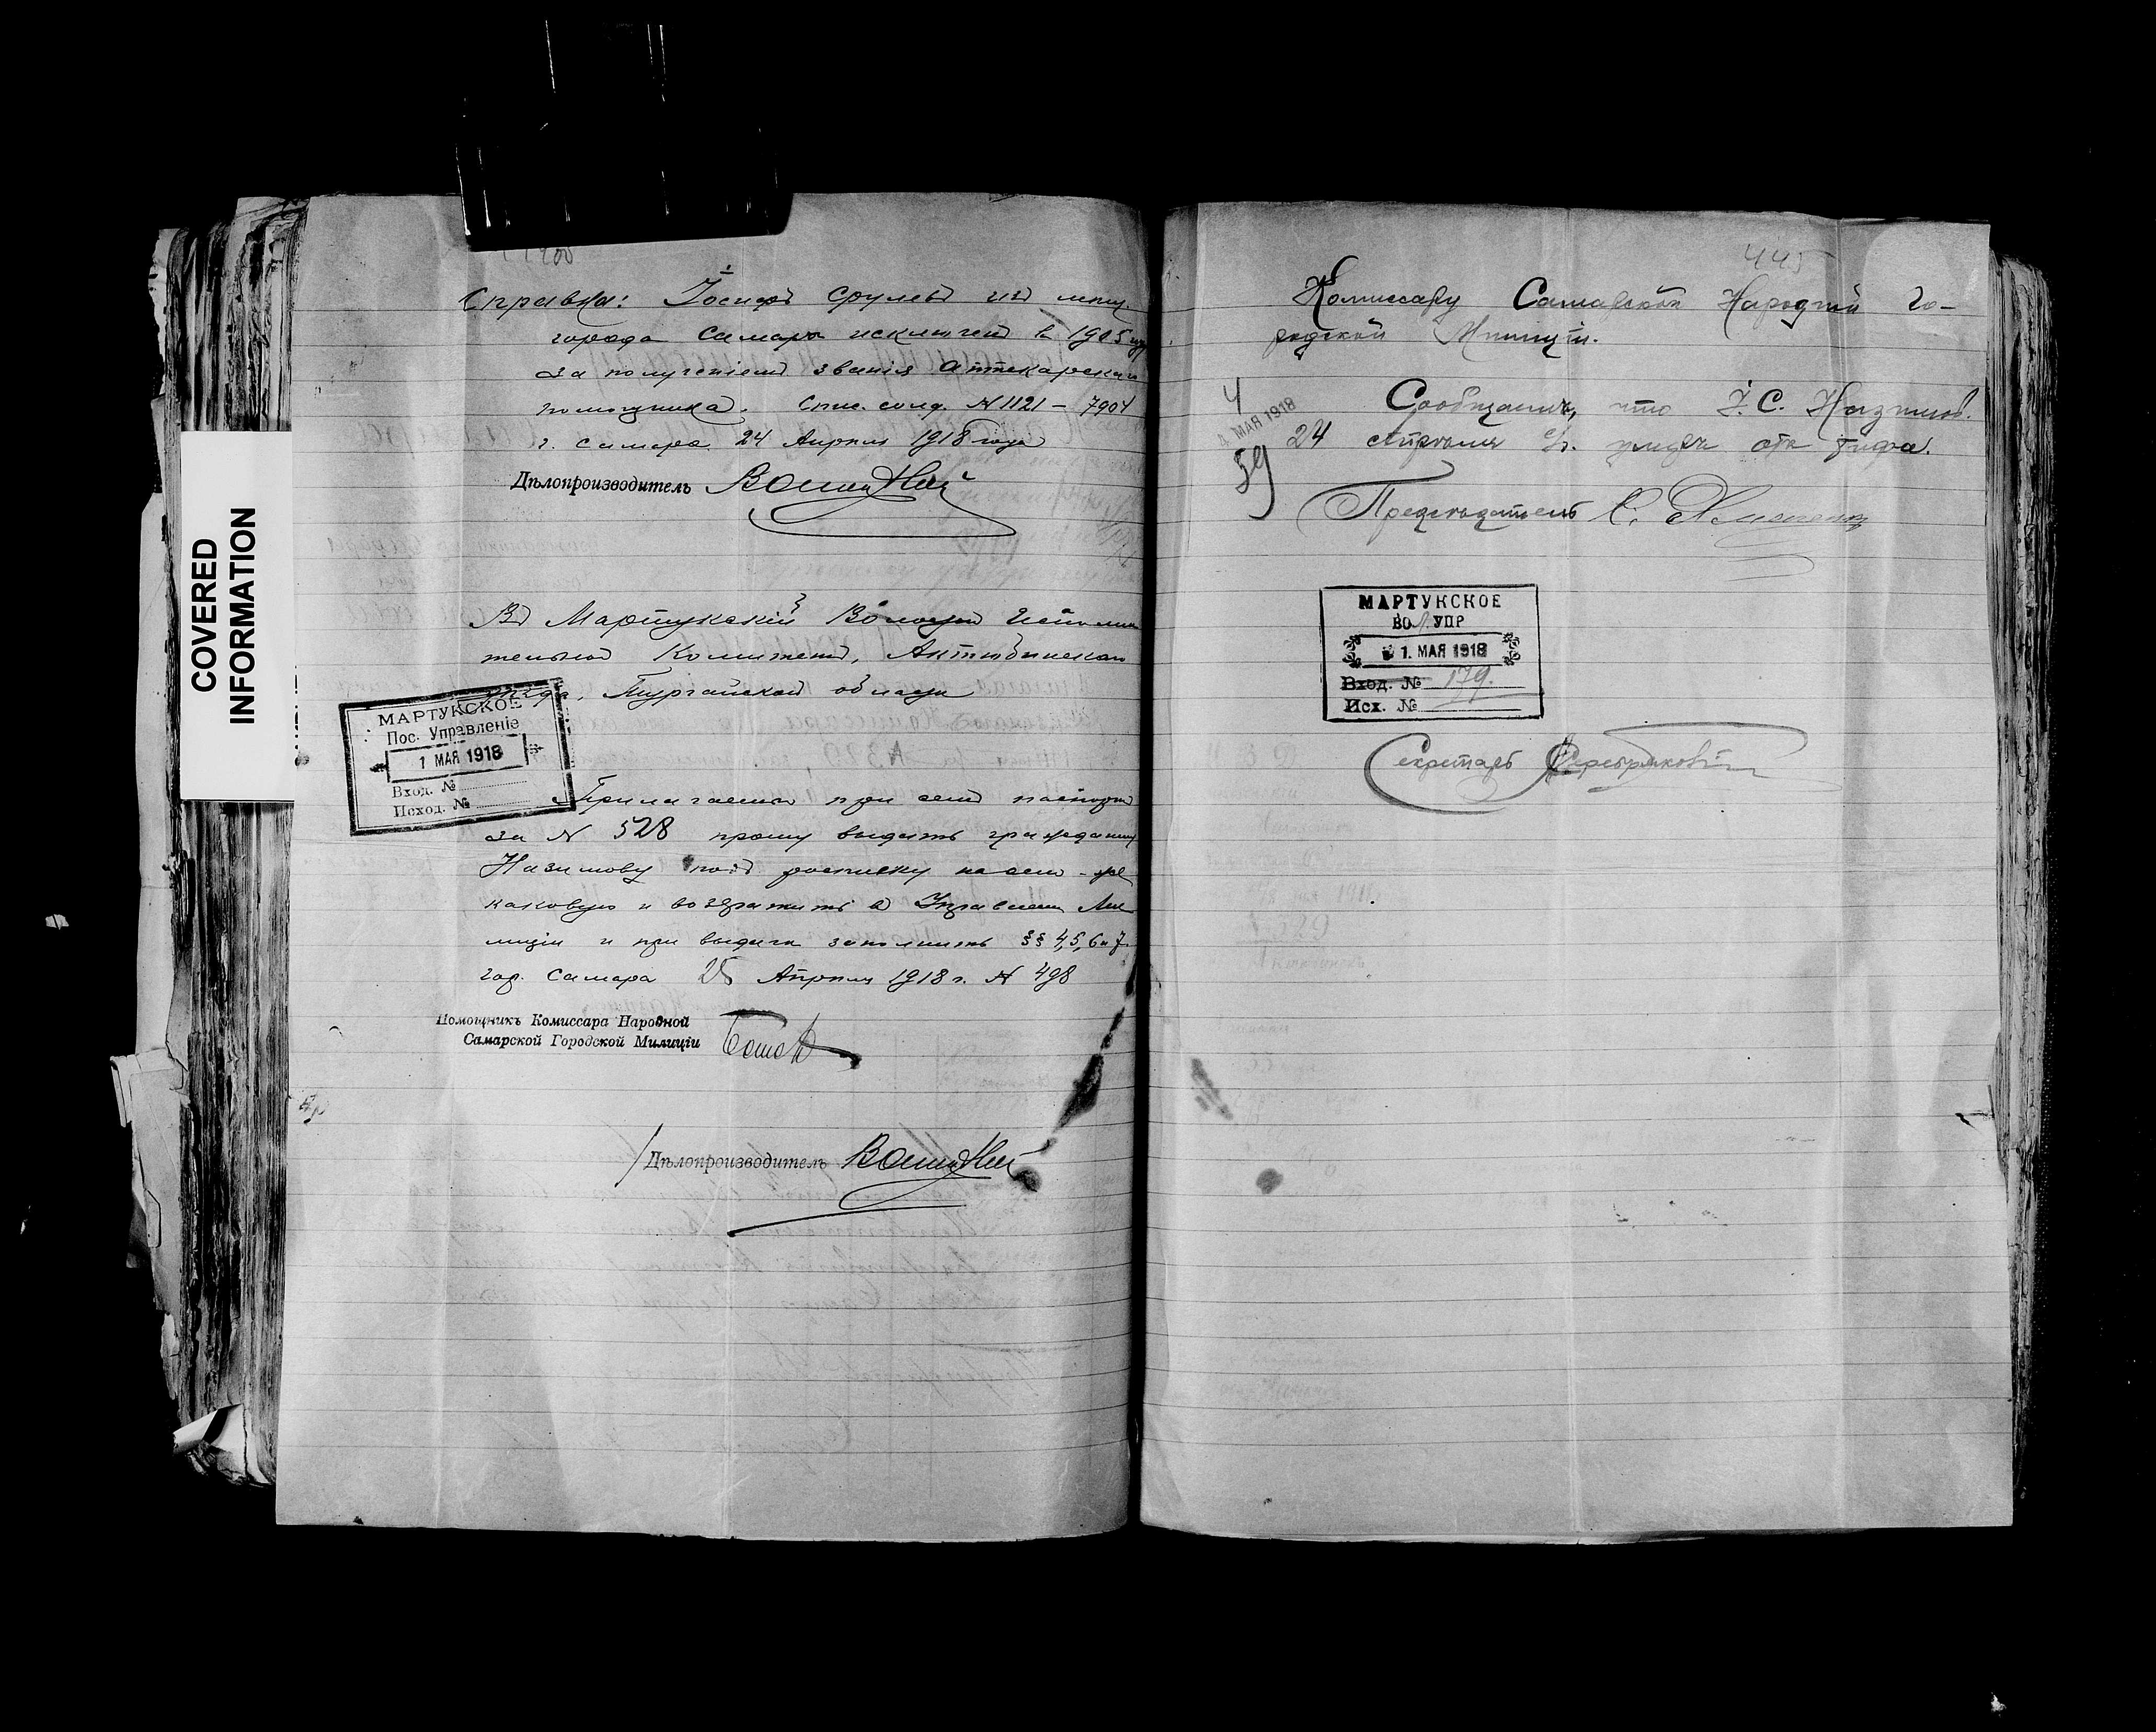 COVERED
INFORMATION
Справка: Іосифъ Срулевъ изъ мѣщ.
города Самары исключенъ въ 1905 году
за полученіемъ званія Аптекарскаго
помощника. Спис. солд. № 1121 - 7904
г. Самара 24 Апрѣля 1918 года
Дѣлопроизводитель
Въ Мартукскій Волостной Исполни
тельной Комитетъ, Актюбинскаго
уѣзда, Тургайской области
МАРТУКСКОЕ
Пос. Управленіе
1 МАЯ 1918
Вход. №
Исход. №
Прилагаемый при семъ паспортъ
за № 528 прошу выдать гражданину
Назимову подъ росписку на семъ-же
каковую и возвратить въ Управленіе Ми
лиціи и при выдачѣ заполнить §§ 4,5,6 и 7.
гор. Самара 25 Апрѣля 1918 г. № 498
Помощникъ Комиссара Народной
Самарской Городской Милиціи
Дѣлопроизводитель
445
Комиссару Самарской Народной Го-
родской Милиціи.
4 МАЯ 1918
59
Сообщаемъ, что І. С. Назимов.
24 Апрѣля с/г. умеръ отъ тифа.
Предсѣдатель
МАРТУКСКОЕ
ВОЛ. УПР
1. МАЯ 1918
Вход. № 179.
Исх. №
Секретарь